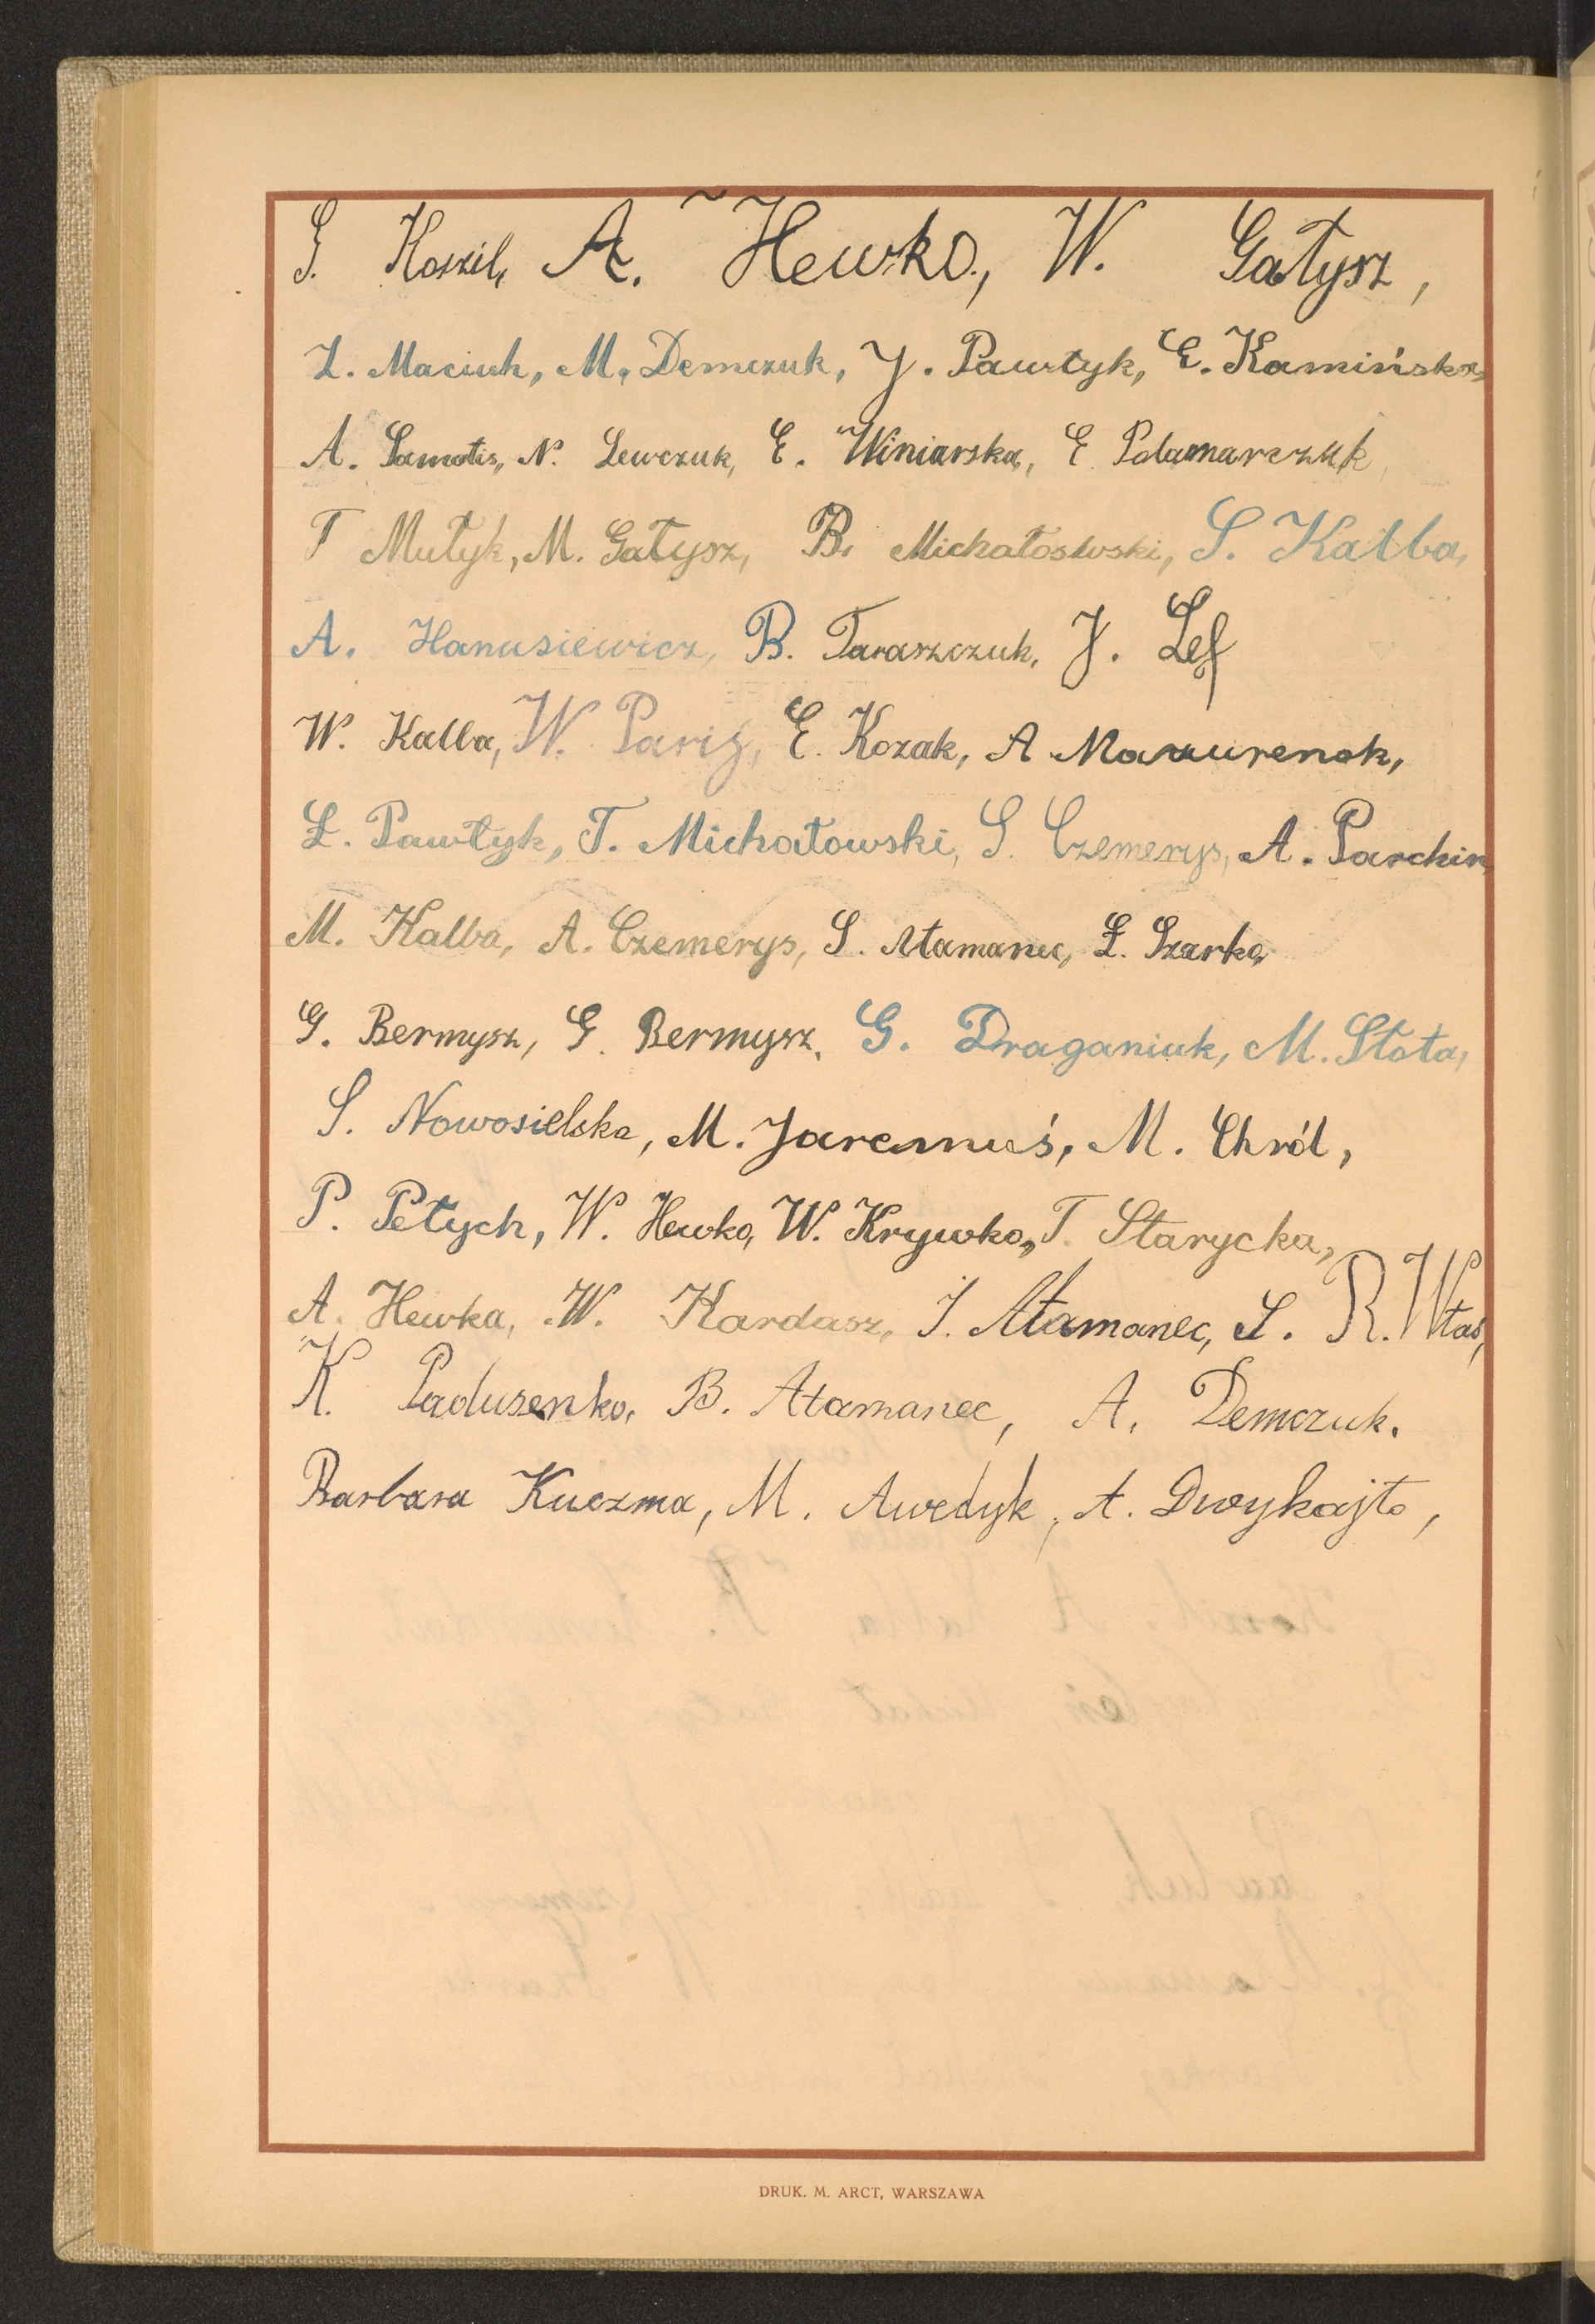 G. Koszil, A. Hewko, W. Gałysz,
Z. Maciuk, M. Demczuk, J. Pawłyk, E. Kamińska,
A. Samotis, N. Lewczuk, E. Winiarska, E. Palamarczuk,
T Mułyk, M. Gałysz, B. Michałoswski, S. Kalba,
A. Hanusiewicz, B. Taraszczuk, J. Lef
W. Kalba, W. Pariż, E. Kozak, A Mazurenok,
Ł. Pawłyk, T. Michałowski, S. Czemerys, A. Parchin,
M. Kalba, A. Czemerys, S. Atamanec, Ł. Szarko,
G. Bermysz, G. Bermysz, G. Draganiuk, M. Słota,
S. Nowosielska, M. Jaremuś, M. Chról,
P. Petych, W. Hewko, W. Krywko, T. Starycka,
A. Hewka, W. Kardasz, J. Atamanec, S. R. Włas,
K. Padusenko, B. Atamanec, A. Demczuk.
Barbara Kuczma, M. Awedyk, A. Dwykajło,
DRUK. M. ARCT, WARSZAWA